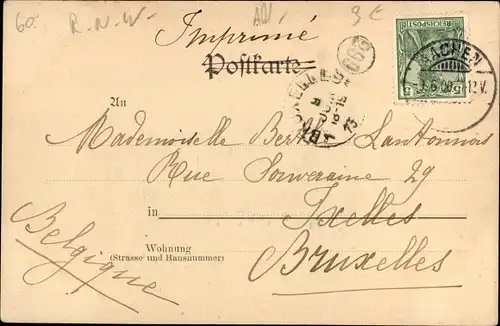 60.
R. N. W.
3 €
Imprimé
Postkarte
666
REICHSPOST
5
5
AACHEN
12 V.
An
Mademoiselle Berthe Lantonnois
Rue Souveraine 29
in Ixelles
Wohnung
(Strasse und Hausnummer)
Bruxelles
Belgique